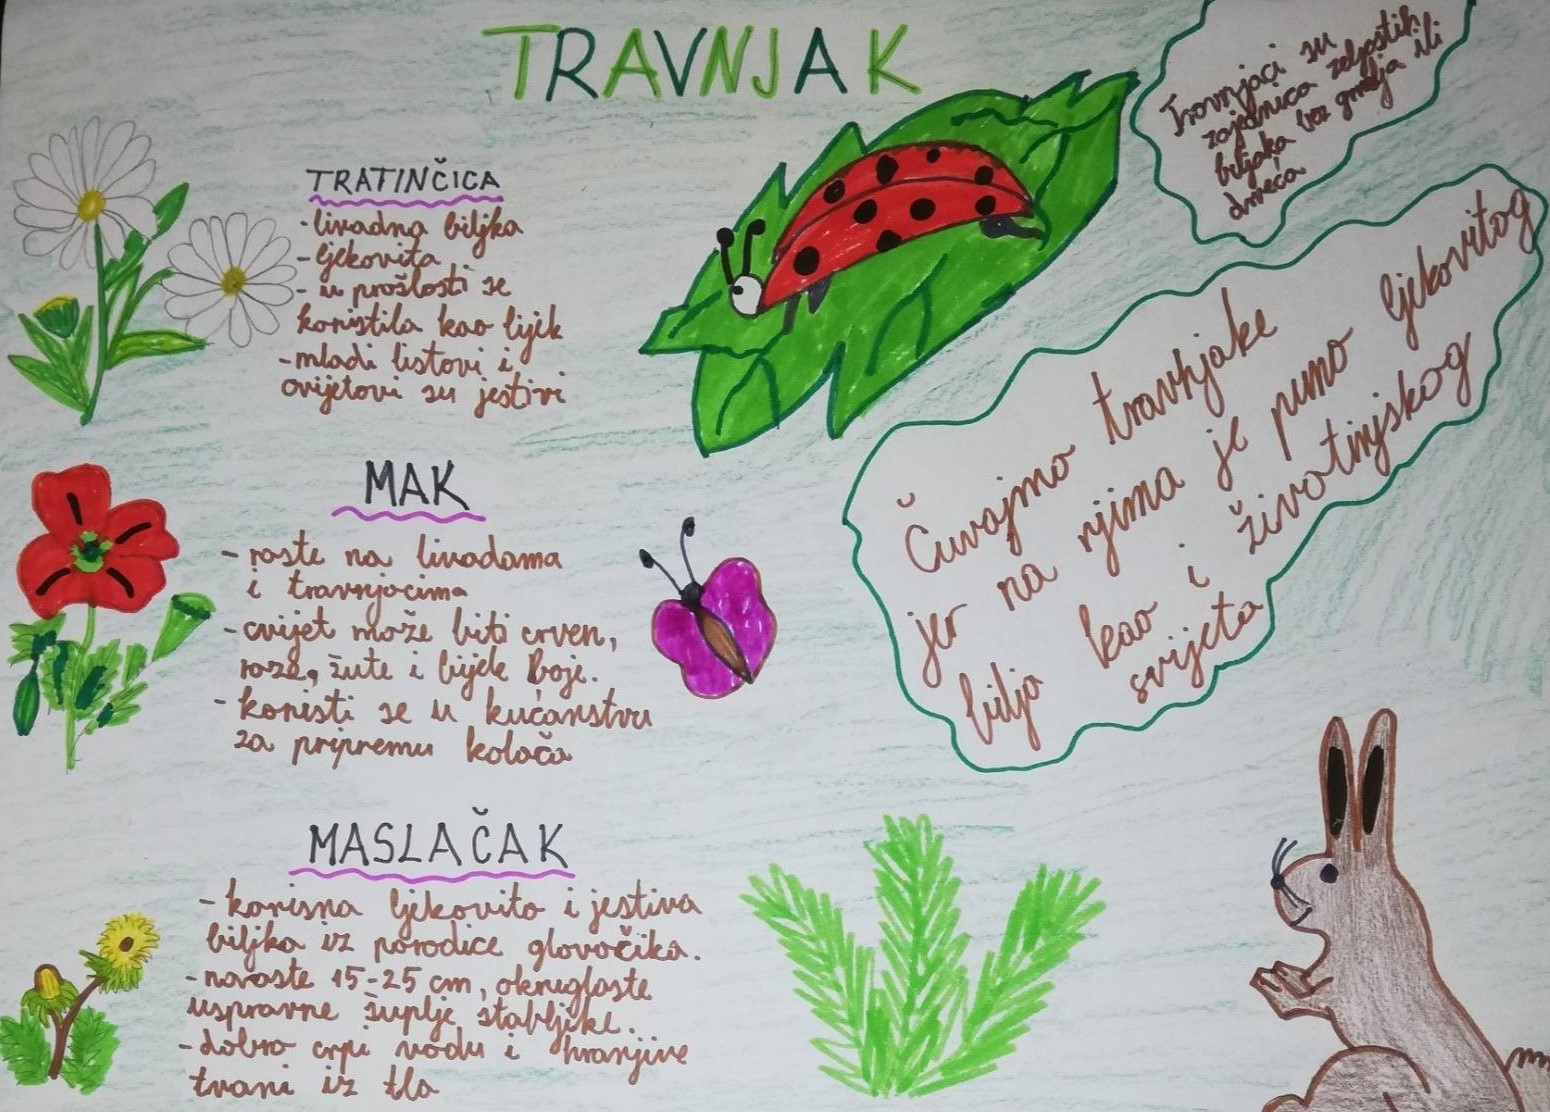 TRAVNJAK
Travnjaci su
zajednica zeljastih
biljaka bez grmlja ili
drveća
TRATINČICA
- livadna biljka
- ljekovita
- u prošlosti se
koristila kao lijek
- mladi listovi i
cvijetovi su jestivi
Čuvajmo travnjake
jer na njima je puno ljekovitog
bilja kao i životinjskog
svijeta
MAK
- raste na livadama
i travnjacima
- cvijet može biti crven,
roze, žute i bijele boje.
- koristi se u kućanstvu
za pripremu kolača
MASLAČAK
- korisna ljekovita i jestiva
biljka iz porodice glavočika.
- naraste 15-25 cm, okruglaste
uspravne šuplje stabljike.
- dobro crpi vodu i hranjive
tvari iz tla